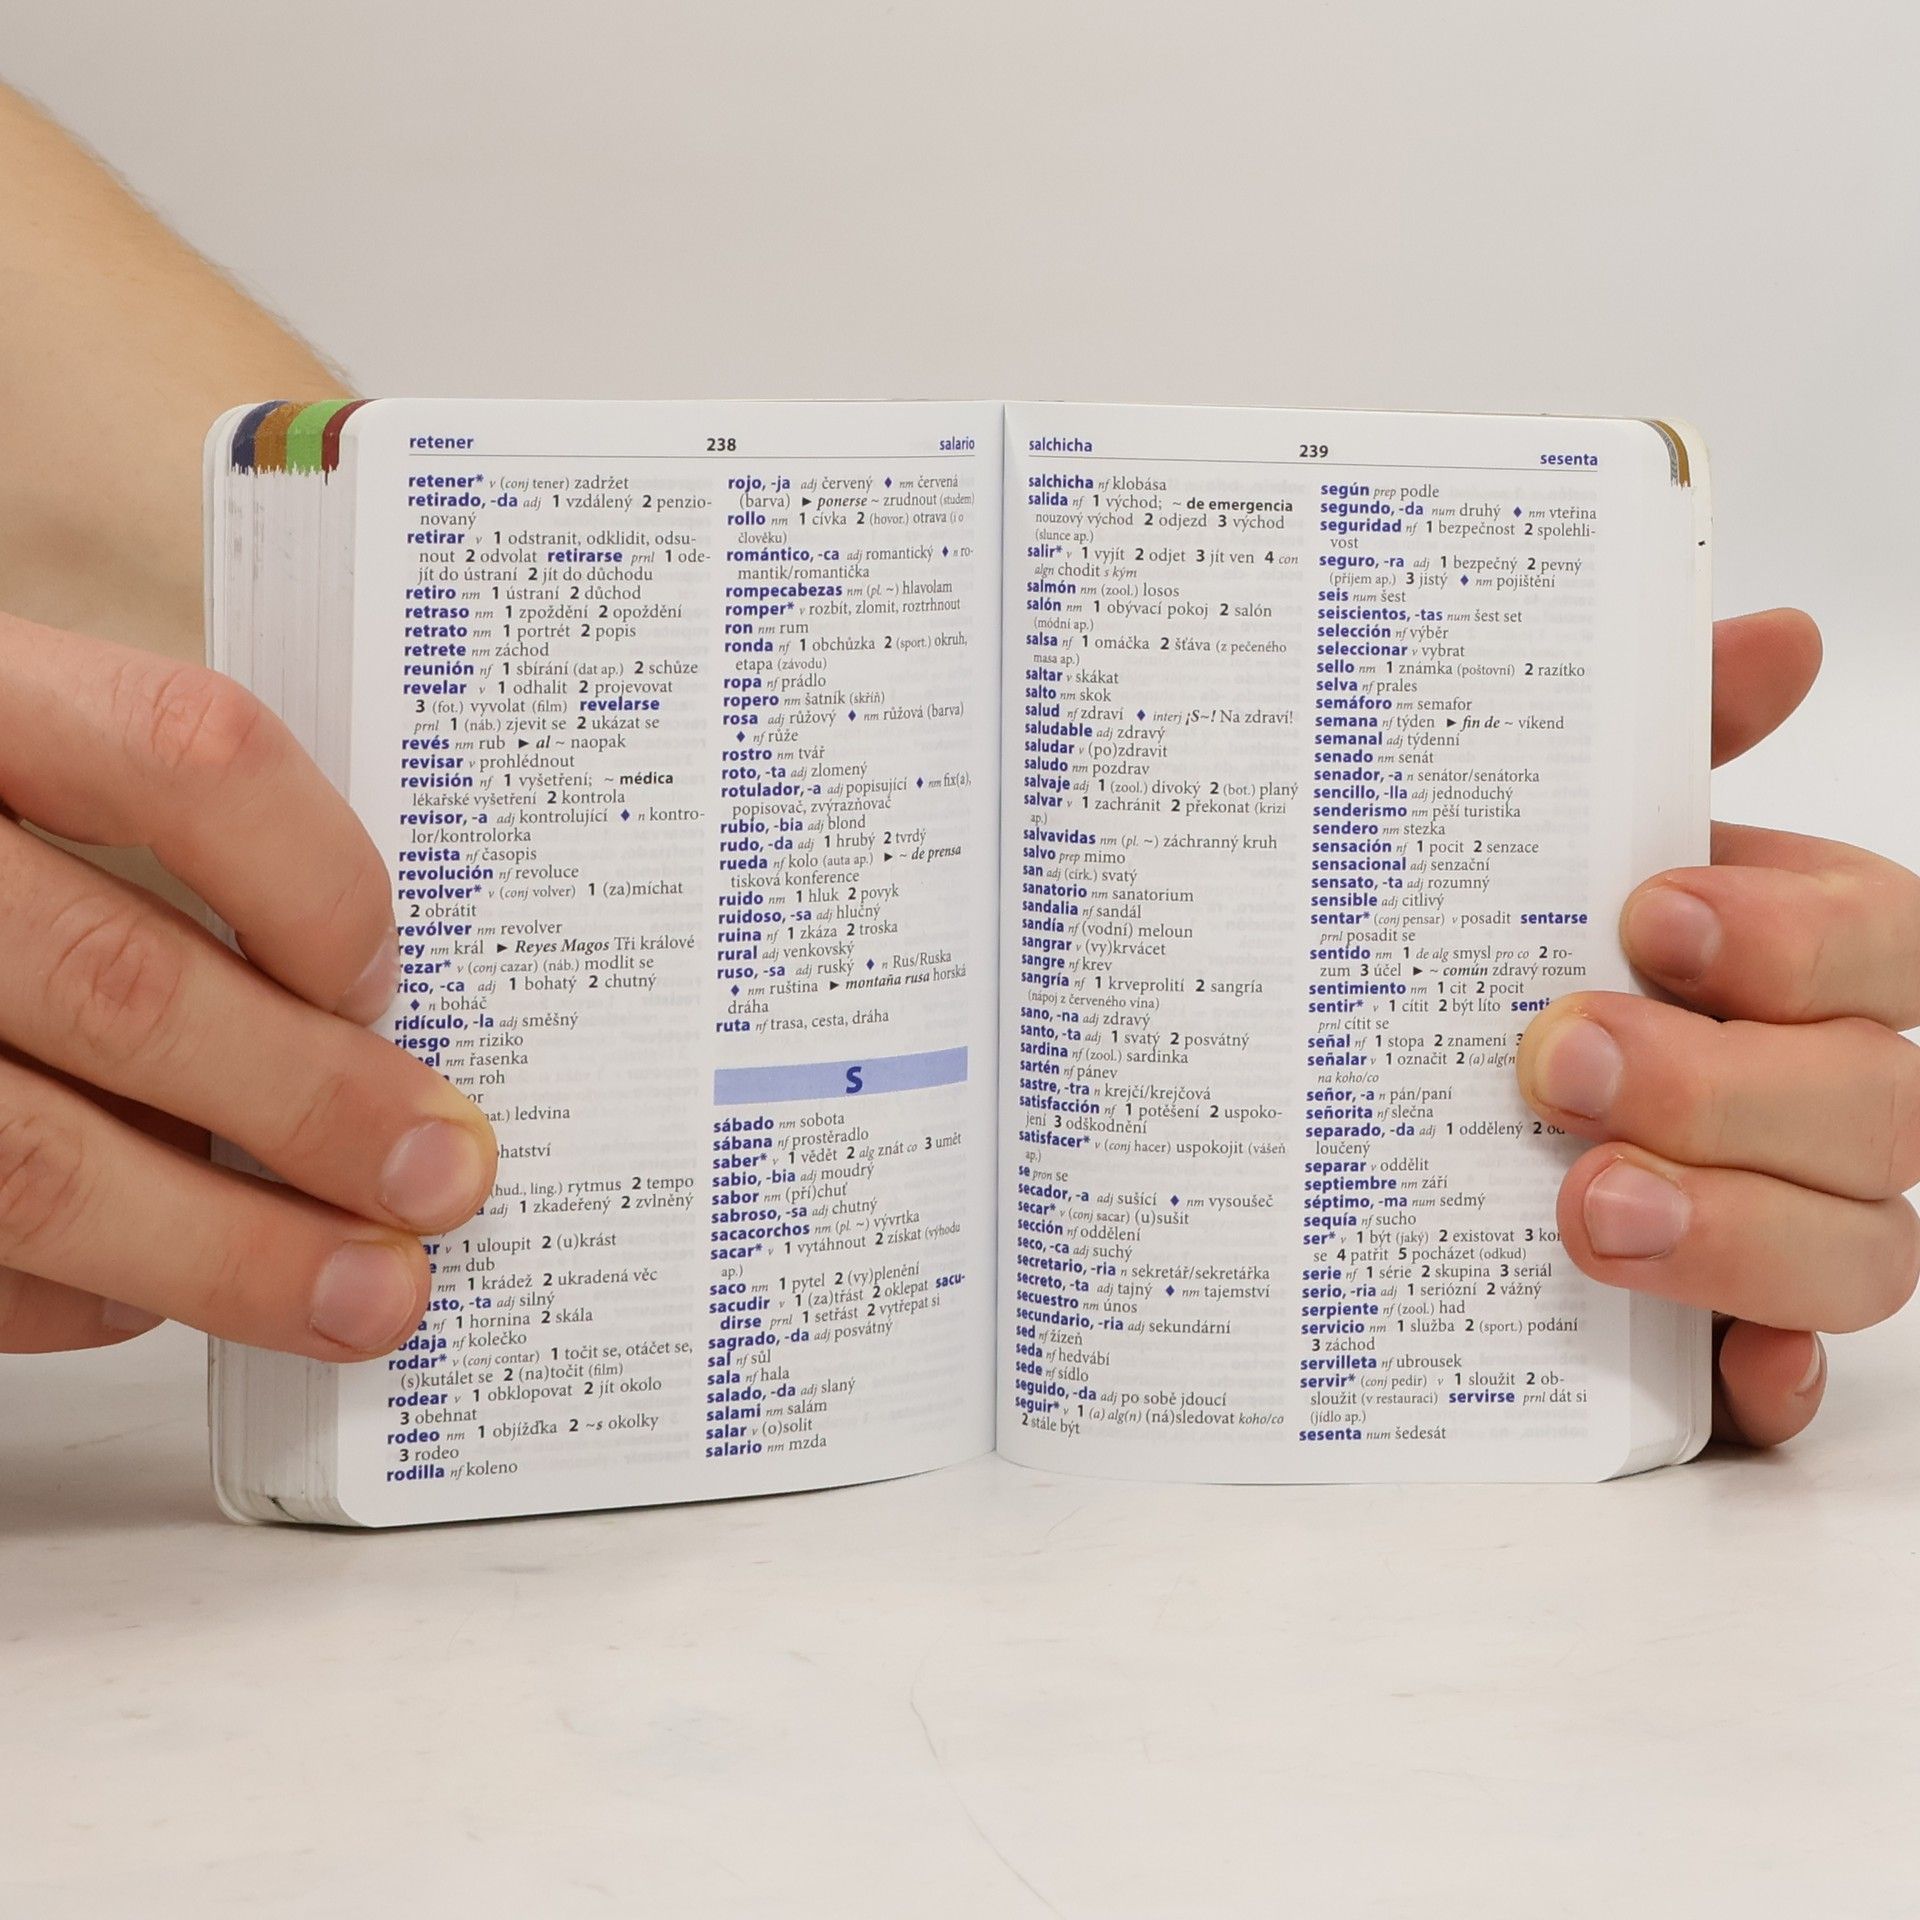 retener 238 salario
retener* v (conj tener) zadržet
retirado, -da adj 1 vzdálený 2 penzio-
novaný
retirar v 1 odstranit, odklidit, odsu-
nout 2 odvolat retirarse prnl 1 ode-
jít do ústraní 2 jít do důchodu
retiro nm 1 ústraní 2 důchod
retraso nm 1 zpoždění 2 opoždění
retrato nm 1 portrét 2 popis
retrete nm záchod
reunión nf 1 sbírání (dat ap.) 2 schůze
revelar v 1 odhalit 2 projevovat
3 (fot.) vyvolat (film) revelarse
prnl 1 (náb.) zjevit se 2 ukázat se
revés nm rub ► al ~ naopak
revisar v prohlédnout
revisión nf 1 vyšetření; ~ médica
lékařské vyšetření 2 kontrola
revisor, -a adj kontrolující ♦ n kontro-
lor/kontrolorka
revista nf časopis
revolución nf revoluce
revolver* v (conj volver) 1 (za)míchat
2 obrátit
revólver nm revolver
rey nm král ► Reyes Magos Tři králové
rezar* v (conj cazar) (náb.) modlit se
rico, -ca adj 1 bohatý 2 chutný
♦ n boháč
ridículo, -la adj směšný
riesgo nm riziko
nel nm řasenka
nm roh
or
nat.) ledvina
ohatství
(hud., ling.) rytmus 2 tempo
adj 1 zkadeřený 2 zvlněný
ar v 1 uloupit 2 (u)krást
e nm dub
nm 1 krádež 2 ukradená věc
usto, -ta adj silný
a nf 1 hornina 2 skála
odaja nf kolečko
rodar* v (conj contar) 1 točit se, otáčet se,
(s)kutálet se 2 (na)točit (film)
rodear v 1 obklopovat 2 jít okolo
3 obehnat
rodeo nm 1 objížďka 2 ~s okolky
3 rodeo
rodilla nf koleno
rojo, -ja adj červený ♦ nm červená
(barva) ► ponerse ~ zrudnout (studem)
rollo nm 1 cívka 2 (hovor.) otrava (i o
člověku)
romántico, -ca adj romantický ♦ n ro-
mantik/romantička
rompecabezas nm (pl. ~) hlavolam
romper* v rozbít, zlomit, roztrhnout
ron nm rum
ronda nf 1 obchůzka 2 (sport.) okruh,
etapa (závodu)
ropa nf prádlo
ropero nm šatník (skříň)
rosa adj růžový ♦ nm růžová (barva)
♦ nf růže
rostro nm tvář
roto, -ta adj zlomený
rotulador, -a adj popisující ♦ nm fix(a),
popisovač, zvýrazňovač
rubio, -bia adj blond
rudo, -da adj 1 hrubý 2 tvrdý
rueda nf kolo (auta ap.) ► ~ de prensa
tisková konference
ruido nm 1 hluk 2 povyk
ruidoso, -sa adj hlučný
ruina nf 1 zkáza 2 troska
rural adj venkovský
ruso, -sa adj ruský ♦ n Rus/Ruska
♦ nm ruština ► montaña rusa horská
dráha
ruta nf trasa, cesta, dráha
S
sábado nm sobota
sábana nf prostěradlo
saber* v 1 vědět 2 alg znát co 3 umět
sabio, -bia adj moudrý
sabor nm (pří)chuť
sabroso, -sa adj chutný
sacacorchos nm (pl. ~) vývrtka
sacar* v 1 vytáhnout 2 získat (výhodu
ap.)
saco nm 1 pytel 2 (vy)plenění
sacudir v 1 (za)třást 2 oklepat sacu-
dirse prnl 1 setřást 2 vytřepat si
sagrado, -da adj posvátný
sal nf sůl
sala nf hala
salado, -da adj slaný
salami nm salám
salar v (o)solit
salario nm mzda
salchicha 239 sesenta
salchicha nf klobása
salida nf 1 východ; ~ de emergencia
nouzový východ 2 odjezd 3 východ
(slunce ap.)
salir* v 1 vyjít 2 odjet 3 jít ven 4 con
algn chodit s kým
salmón nm (zool.) losos
salón nm 1 obývací pokoj 2 salón
(módní ap.)
salsa nf 1 omáčka 2 šťáva (z pečeného
masa ap.)
saltar v skákat
salto nm skok
salud nf zdraví ♦ interj ¡S~! Na zdraví!
saludable adj zdravý
saludar v (po)zdravit
saludo nm pozdrav
salvaje adj 1 (zool.) divoký 2 (bot.) planý
salvar v 1 zachránit 2 překonat (krizi
ap.)
salvavidas nm (pl. ~) záchranný kruh
salvo prep mimo
san adj (círk.) svatý
sanatorio nm sanatorium
sandalia nf sandál
sandía nf (vodní) meloun
sangrar v (vy)krvácet
sangre nf krev
sangría nf 1 krveprolití 2 sangría
(nápoj z červeného vína)
sano, -na adj zdravý
santo, -ta adj 1 svatý 2 posvátný
sardina nf (zool.) sardinka
sartén nf pánev
sastre, -tra n krejčí/krejčová
satisfacción nf 1 potěšení 2 uspoko-
jení 3 odškodnění
satisfacer* v (conj hacer) uspokojit (vášeň
ap.)
se pron se
secador, -a adj sušící ♦ nm vysoušeč
secar* v (conj sacar) (u)sušit
sección nf oddělení
seco, -ca adj suchý
secretario, -ria n sekretář/sekretářka
secreto, -ta adj tajný ♦ nm tajemství
secuestro nm únos
secundario, -ria adj sekundární
sed nf žízeň
seda nf hedvábí
sede nf sídlo
seguido, -da adj po sobě jdoucí
seguir* v 1 (a) alg(n) (ná)sledovat koho/co
2 stále být
según prep podle
segundo, -da num druhý ♦ nm vteřina
seguridad nf 1 bezpečnost 2 spolehli-
vost
seguro, -ra adj 1 bezpečný 2 pevný
(příjem ap.) 3 jistý ♦ nm pojištění
seis num šest
seiscientos, -tas num šest set
selección nf výběr
seleccionar v vybrat
sello nm 1 známka (poštovní) 2 razítko
selva nf prales
semáforo nm semafor
semana nf týden ► fin de ~ víkend
semanal adj týdenní
senado nm senát
senador, -a n senátor/senátorka
sencillo, -lla adj jednoduchý
senderismo nm pěší turistika
sendero nm stezka
sensación nf 1 pocit 2 senzace
sensacional adj senzační
sensato, -ta adj rozumný
sensible adj citlivý
sentar* (conj pensar) v posadit sentarse
prnl posadit se
sentido nm 1 de alg smysl pro co 2 ro-
zum 3 účel ► ~ común zdravý rozum
sentimiento nm 1 cit 2 pocit
sentir* v 1 cítit 2 být líto senti
prnl cítit se
señal nf 1 stopa 2 znamení 3
señalar v 1 označit 2 (a) alg(n
na koho/co
señor, -a n pán/paní
señorita nf slečna
separado, -da adj 1 oddělený 2 od
loučený
separar v oddělit
septiembre nm září
séptimo, -ma num sedmý
sequía nf sucho
ser* v 1 být (jaký) 2 existovat 3 ko
se 4 patřit 5 pocházet (odkud)
serie nf 1 série 2 skupina 3 seriál
serio, -ria adj 1 seriózní 2 vážný
serpiente nf (zool.) had
servicio nm 1 služba 2 (sport.) podání
3 záchod
servilleta nf ubrousek
servir* (conj pedir) v 1 sloužit 2 ob-
sloužit (v restauraci) servirse prnl dát si
(jídlo ap.)
sesenta num šedesát